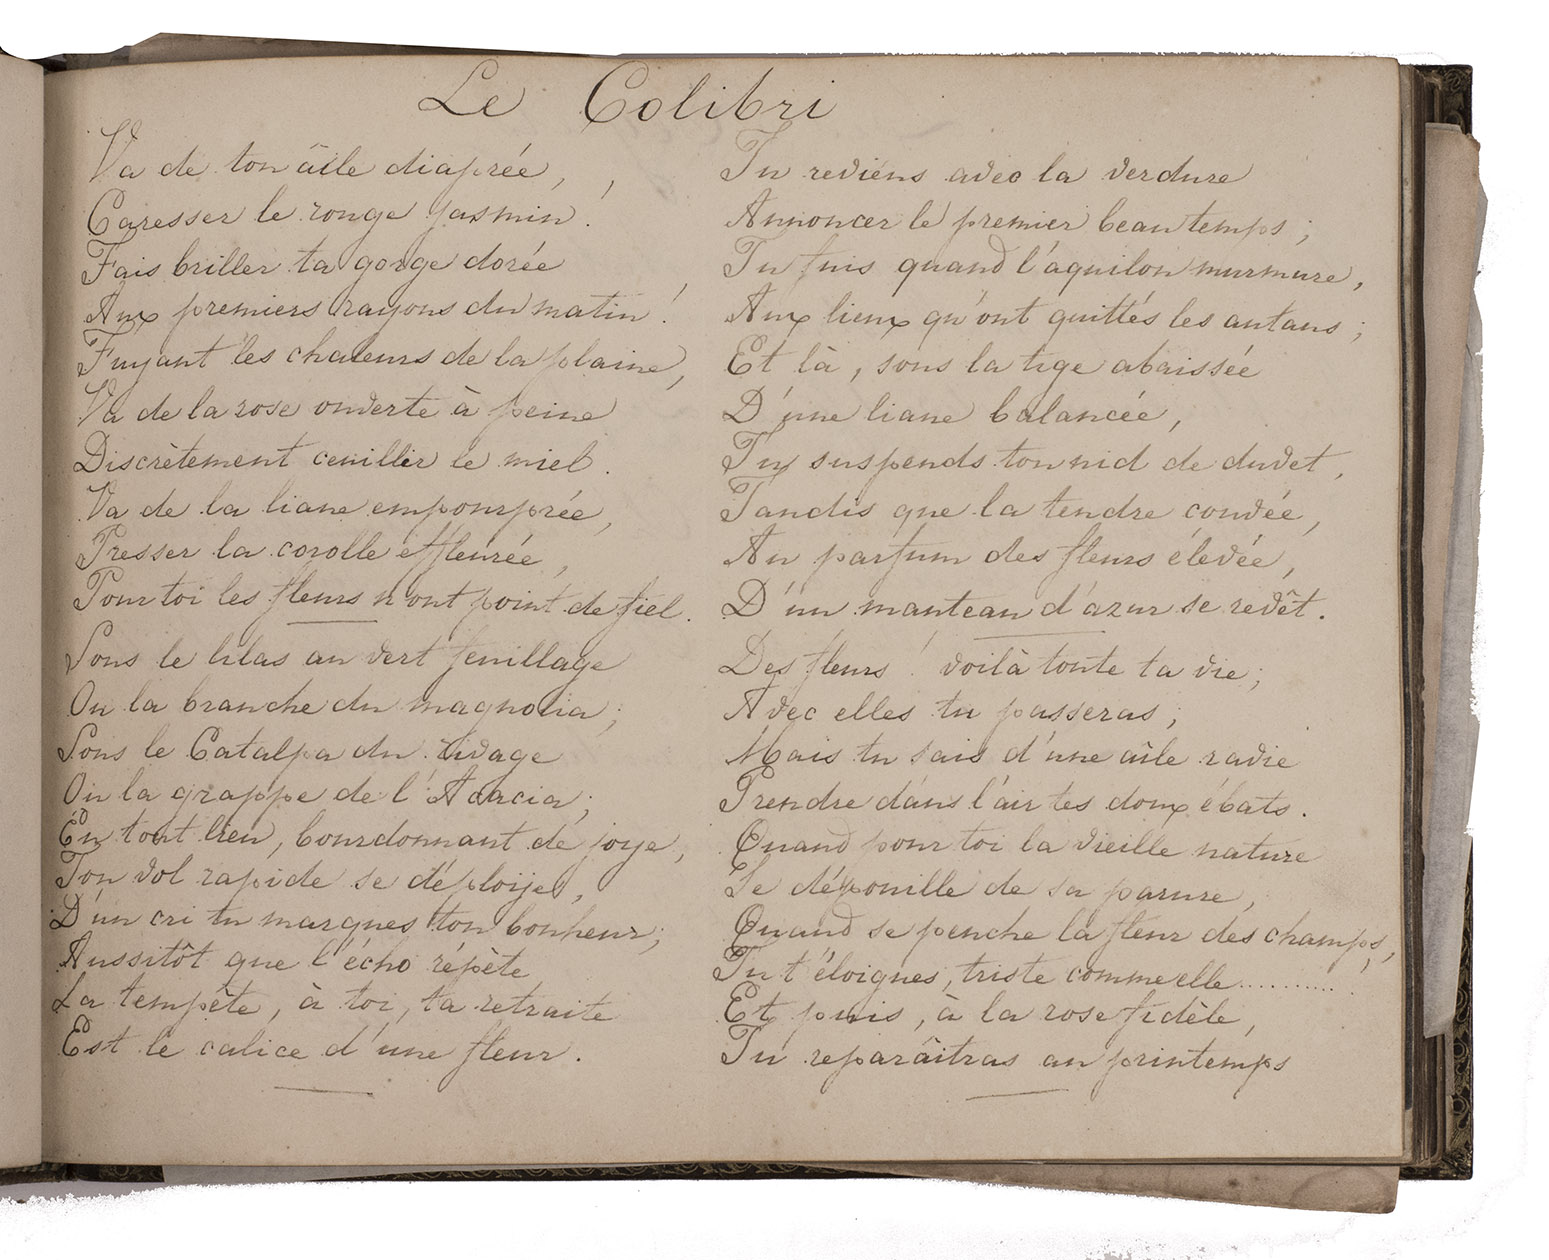 Le Colibri
Va de ton aîle diaprée,
Caresser le rouge jasmin !
Fais briller ta gorge dorée
Aux premiers rayons du matin !
Fuyant les chaleurs de la plaine,
Va de la rose ouverte à peine
Discrètement ceuillir le miel.
Va de la liane empourprée,
Presser la corolle effleurée,
Pour toi les fleurs n'ont point de fiel.
Sous le lilas au vert feuillage
Ou la branche du magnolia ;
Sous le Catalpa du rivage
Ou la grappe de l'Acacia ;
En tout lieu, bourdonnant de joye,
Ton vol rapide se déploije,
D'un cri tu marques ton bonheur ;
Aussitôt que l'écho répète
La tempête, à toi, ta retraite
Est le calice d'une fleur.
Tu reviens avec la verdure
Annoncer le premier beau temps ;
Tu fuis quand l'aquilon murmure,
Aux lieux qu'ont quittés les autans ;
Et là, sous la tige abaissée
D'une liane balancée,
Tu suspends ton nid de duvet,
Tandis que la tendre couvée,
Au parfum des fleurs élevée,
D'un manteau d'azur se revêt.
Des fleurs ! voilà toute ta vie ;
Avec elles tu passeras ;
Mais tu sais d'une aîle ravie
Prendre dans l'air tes doux ébats.
Quand pour toi la vieille nature
Se dépouille de sa parure,
Quand se penche la fleur des champs,
Tu t'éloignes, triste comme elle.......... !
Et puis, à la rose fidèle,
Tu reparaîtras au printemps